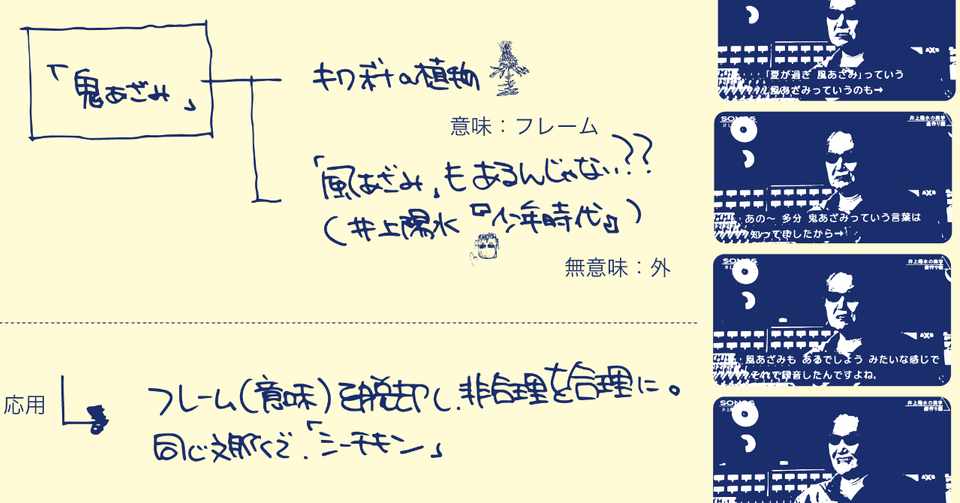 「鬼あざみ」
キク科の植物
意味：フレーム
「風あざみ」もあるんじゃない??
(井上陽水『少年時代』)
無意味：外
応用
フレーム(意味)を脱却し、非合理を合理に。
同じ文脈で、「シーチキン」
「夏が過ぎ 風あざみ」っていう
風あざみっていうのも→
SONGS
井上陽水の美学
あの〜 多分 鬼あざみっていう言葉は
知ってましたから→
SONGS
井上陽水の美学
風あざみも あるでしょう みたいな感じで
それで録音したんですよね。
SONGS
井上陽水の美学